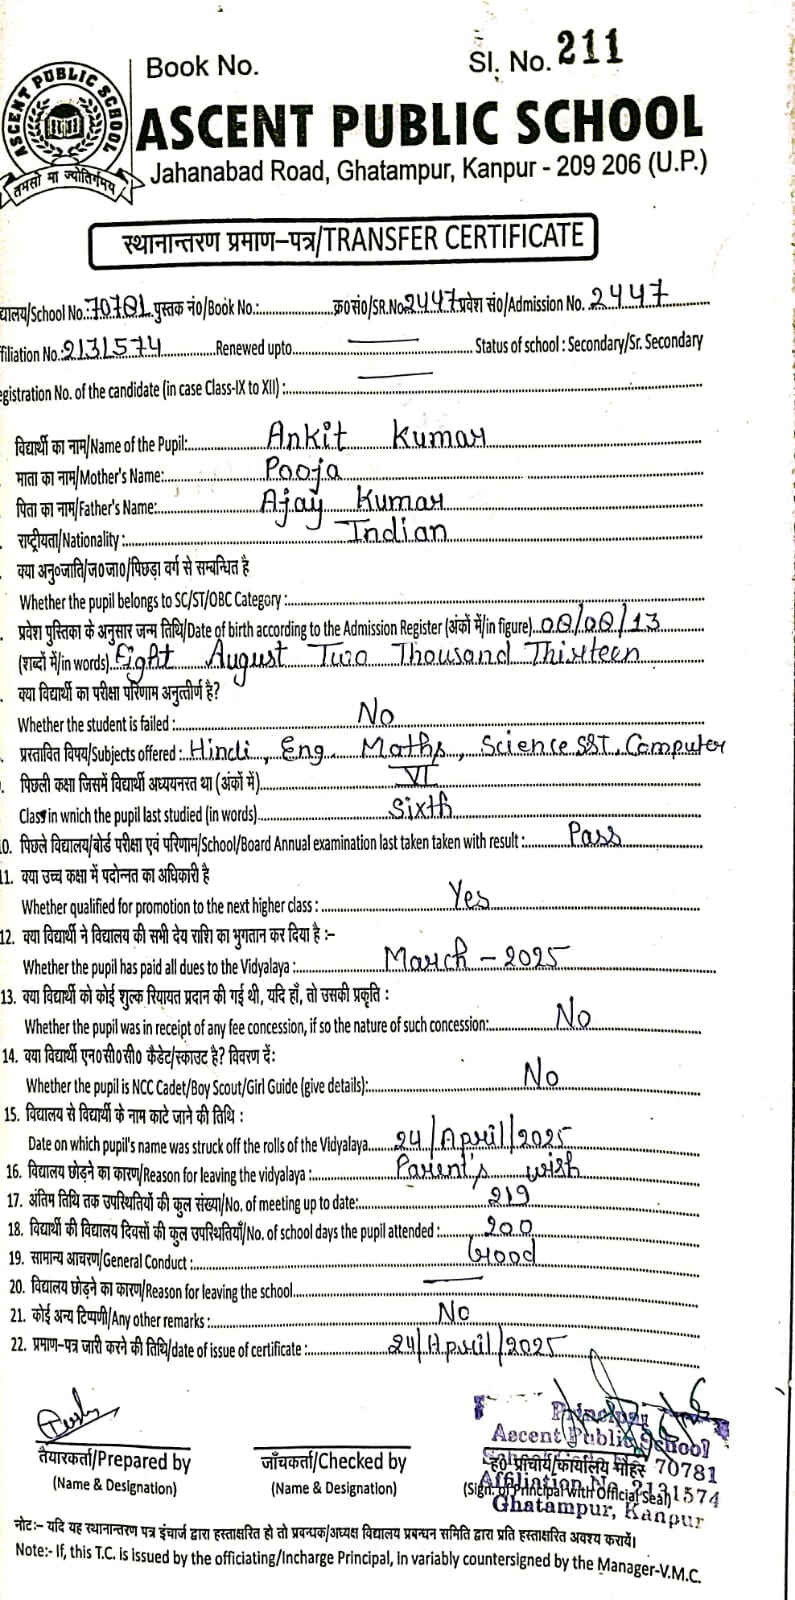 Book No. Sl. No. 211
ASCENT PUBLIC SCHOOL
तमसो मा ज्योतिर्गमय
ASCENT PUBLIC SCHOOL
Jahanabad Road, Ghatampur, Kanpur - 209 206 (U.P.)
स्थानान्तरण प्रमाण-पत्र/TRANSFER CERTIFICATE
द्यालय/School No.: 70781 पुस्तक नं०/Book No.: क्र०सं०/SR.No. 2447 प्रवेश सं०/Admission No. 2447
filiation No.: 2131574 Renewed upto — Status of school : Secondary/Sr. Secondary
egistration No. of the candidate (in case Class-IX to XII) : —
विद्यार्थी का नाम/Name of the Pupil: Ankit Kumar
माता का नाम/Mother's Name: Pooja
पिता का नाम/Father's Name: Ajay Kumar
राष्ट्रीयता/Nationality : Indian
क्या अनु०जाति/ज०जा०/पिछड़ा वर्ग से सम्बन्धित है
Whether the pupil belongs to SC/ST/OBC Category :
प्रवेश पुस्तिका के अनुसार जन्म तिथि/Date of birth according to the Admission Register (अंकों में/in figure) 08/08/13
(शब्दों में/in words) Eight August Two Thousand Thirteen
क्या विद्यार्थी का परीक्षा परिणाम अनुत्तीर्ण है?
Whether the student is failed : No
प्रस्तावित विषय/Subjects offered : Hindi, Eng. Maths, Science SST, Computer
पिछली कक्षा जिसमें विद्यार्थी अध्ययनरत था (अंकों में) VI
Class in wnich the pupil last studied (in words) Sixth
0. पिछले विद्यालय/बोर्ड परीक्षा एवं परिणाम/School/Board Annual examination last taken taken with result : Pass
11. क्या उच्च कक्षा में पदोन्नत का अधिकारी है
Whether qualified for promotion to the next higher class : Yes
12. क्या विद्यार्थी ने विद्यालय की सभी देय राशि का भुगतान कर दिया है :-
Whether the pupil has paid all dues to the Vidyalaya : March - 2025
13. क्या विद्यार्थी को कोई शुल्क रियायत प्रदान की गई थी, यदि हाँ, तो उसकी प्रकृति :
Whether the pupil was in receipt of any fee concession, if so the nature of such concession: No
14. क्या विद्यार्थी एन०सी०सी० कैडेट/स्काउट है? विवरण दें:
Whether the pupil is NCC Cadet/Boy Scout/Girl Guide (give details): No
15. विद्यालय से विद्यार्थी के नाम काटे जाने की तिथि :
Date on which pupil's name was struck off the rolls of the Vidyalaya 24/April/2025
16. विद्यालय छोड़ने का कारण/Reason for leaving the vidyalaya : Parent's wish
17. अंतिम तिथि तक उपस्थितियों की कुल संख्या/No. of meeting up to date: 219
18. विद्यार्थी की विद्यालय दिवसों की कुल उपस्थितियाँ/No. of school days the pupil attended : 200
19. सामान्य आचरण/General Conduct : Good
20. विद्यालय छोड़ने का कारण/Reason for leaving the school —
21. कोई अन्य टिप्पणी/Any other remarks : No
22. प्रमाण-पत्र जारी करने की तिथि/date of issue of certificate : 24/April/2025
तैयारकर्ता/Prepared by जाँचकर्ता/Checked by ह० प्राचार्य/कार्यालय मोहर
(Name & Designation) (Name & Designation) (Sign. of Principal With Official Seal)
Principal
Ascent Public School
70781
Affiliation No. 2131574
Ghatampur, Kanpur
नोट:- यदि यह स्थानान्तरण पत्र इंचार्ज द्वारा हस्ताक्षरित हो तो प्रबन्धक/अध्यक्ष विद्यालय प्रबन्धन समिति द्वारा प्रति हस्ताक्षरित अवश्य करायें।
Note:- If, this T.C. is issued by the officiating/Incharge Principal, in variably countersigned by the Manager-V.M.C.